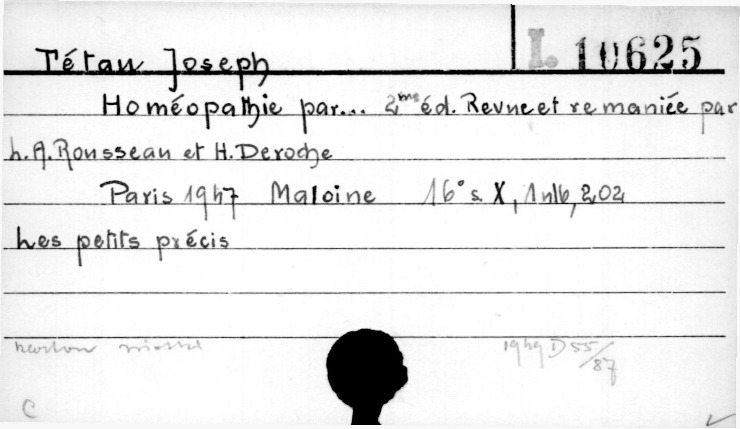 I. 10625
Tétau Joseph
Homéopathie par... 2me éd. Revue et remaniée par
L.A. Rousseau et H. Deroche
Paris 1947 Maloine 16° s. X, 202
Les petits précis
1949 D 55/87
C